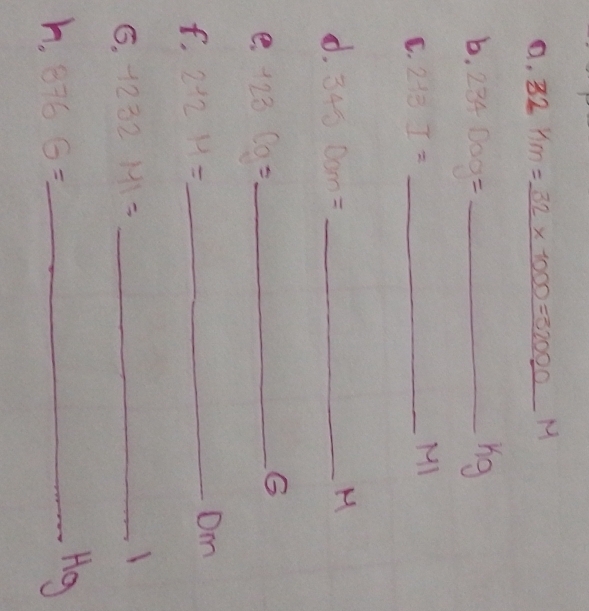 a. 32 Km = 32 x 1000 = 32000 M
b. 234 Dag = Kg
c. 213 I = Ml
d. 345 Dam = M
e. 123 Cg = G
f. 212 M = Dm
G. 1232 Ml = l
h. 876 G = Hg